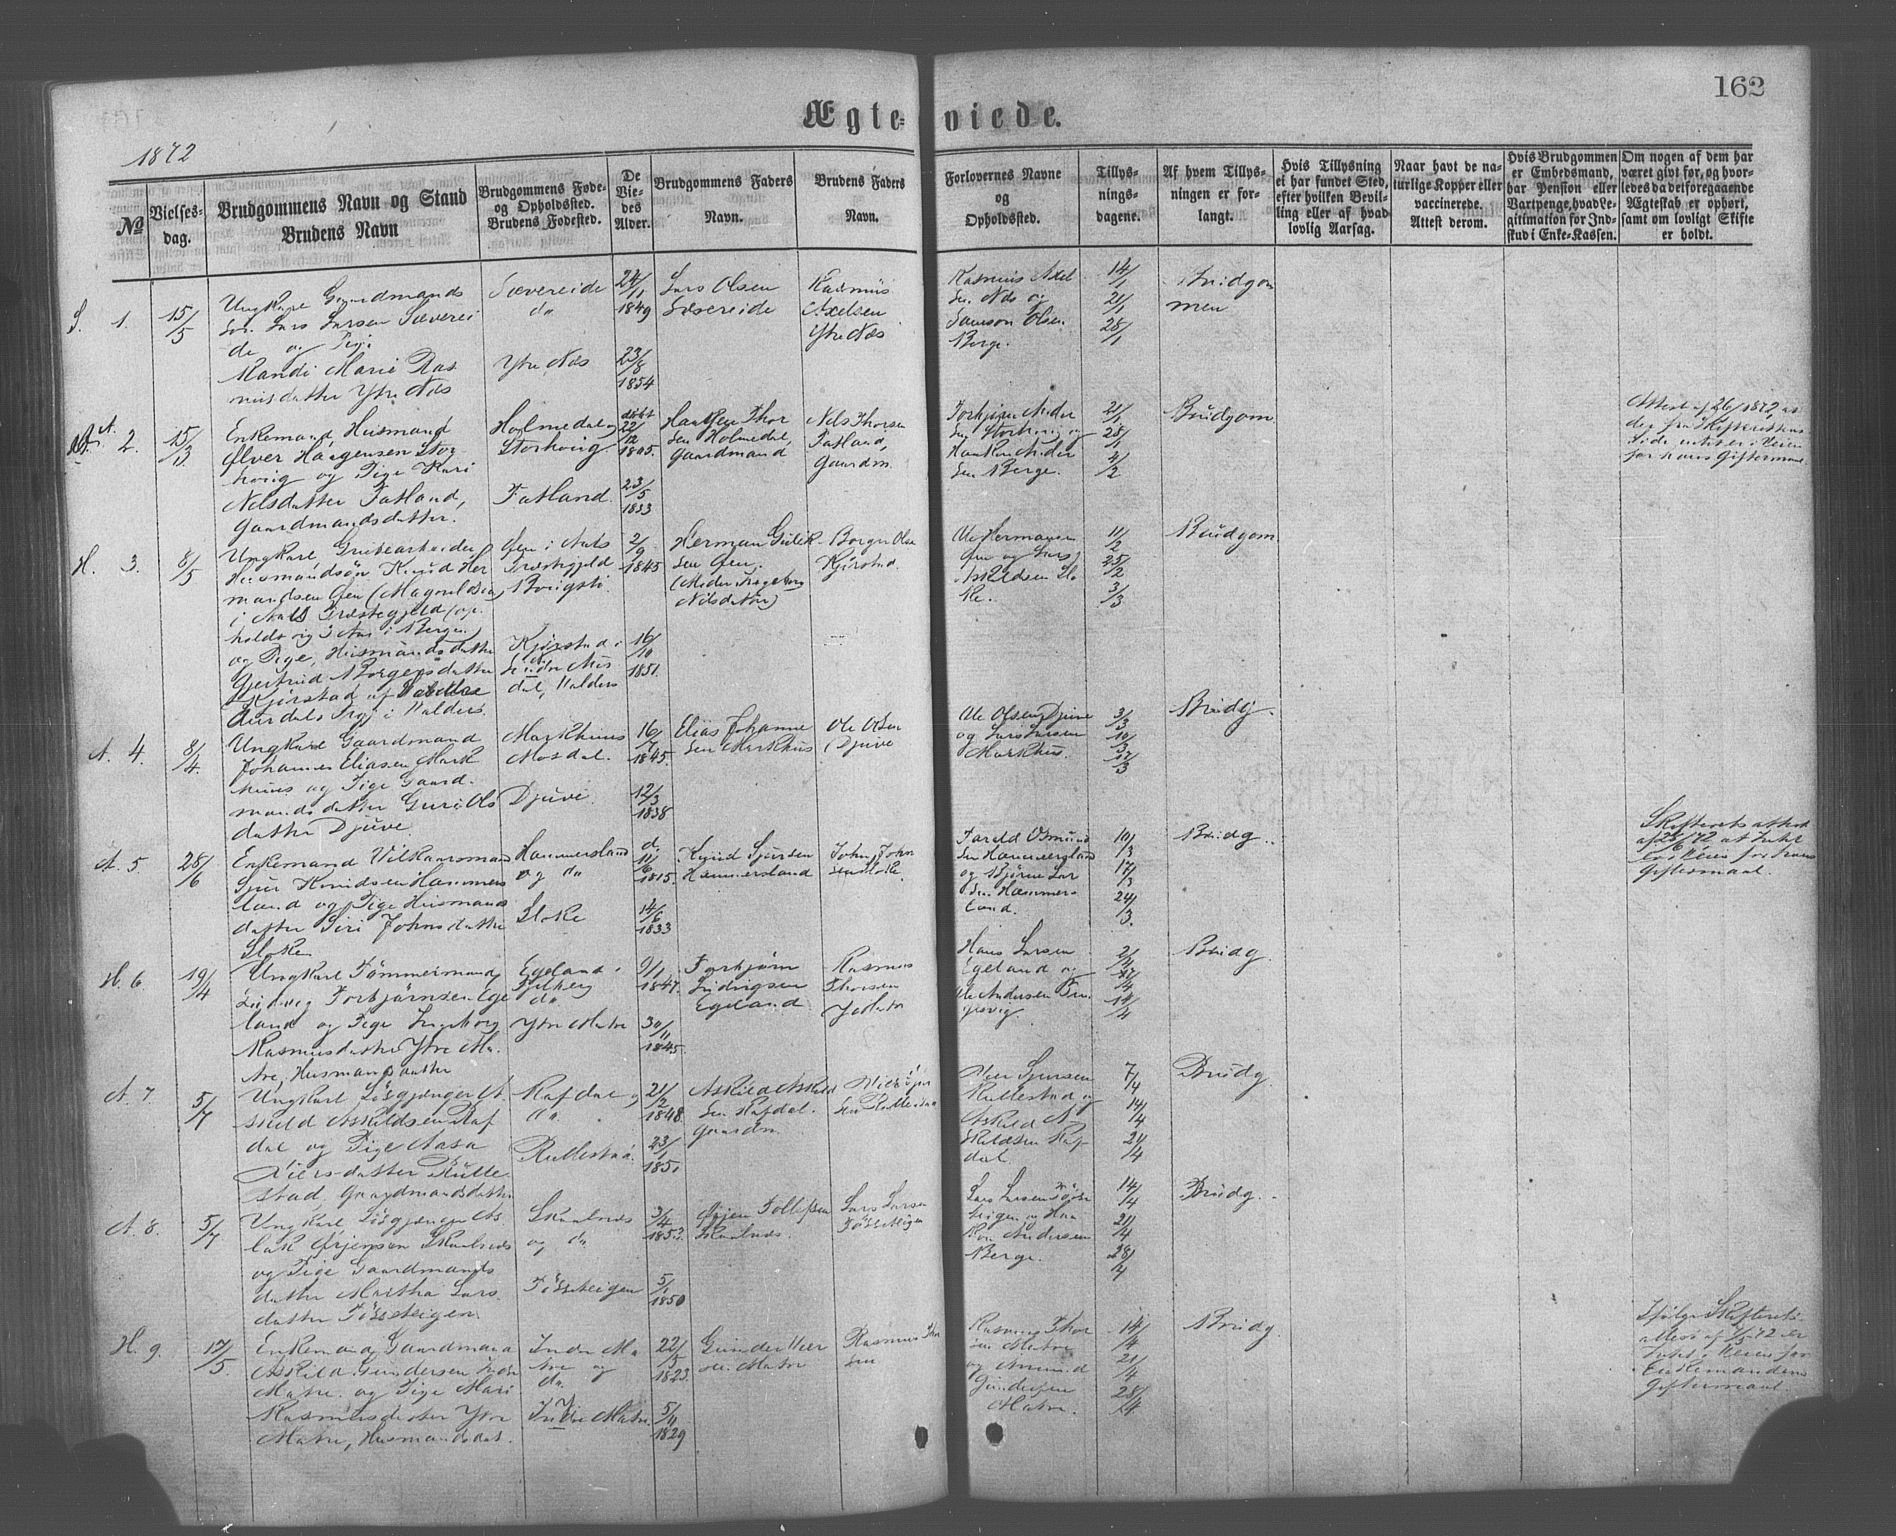 162
Ægte-viede.
1872
№
Vielses-
dag.
Brudgommens Navn og Stand
Brudens Navn
Brudgommens Føde-
og Opholdssted.
Brudens Fødested.
De
Vie-
des
Alder.
Brudgommens Faders
Navn.
Brudens Faders
Navn.
Forlovernes Navne
og
Opholdssted.
Tillys-
nings-
dagene.
Af hvem Tillys-
ningen er for-
langt.
Hvis Tillysning
ei har fundet Sted,
efter hvilken Bevil-
ling eller af hvad
lovlig Aarsag.
Naar havt de na-
turlige Kopper eller
vaccinerede.
Attest derom.
Hvis Brudgommen
er Embedsmand,
har Pension eller
Vartpenge, hvad Le-
gitimation for Ind-
skud i Enke-Kassen.
Om nogen af dem har
været givt før, og hvor-
ledes da det foregaaende
Ægteskab er ophørt,
samt om lovligt Skifte
er holdt.
S. 1. 15/5
Ungkarl Gaardmands
Søn Lars Larsen Sæverei
de og Pige
Randi Marie Ras
musdatter Ytre Næs
Sævereide
do
Ytre Næs
24/1
1849
23/8
1854
Lars Olsen
Sævereide
Rasmus
Axelsen
Ytre Næs
Rasmus Axel
sen Næs og
Samson Olsen
Berge.
14/1
21/1
28/1
Brudgom
men
2. 15/3
Enkemand, Husmand
Ølver Haagensen Stor
hovig og Pige Kari
Nilsdatter Fatland,
Gaardmandsdatter.
Holmedal og
Storhovig
Fatland.
døbt
22/12
1805.
23/5
1833
Haagen Thor
sen Holmedal,
Gaardmand
Nels Thorsen
Fatland,
Gaardm.
Torbjørn Ander
sen Storhovig og
Haakon Ander
sen Berge.
21/1
28/1
4/2
Brudgom
Attest af 26/1 1872
for hans Giftermaal
H. 3. 8/5
Ungkarl, Grubearbeider
Husmandsøn Knud Her
mandsen Øen (Magnildøen)
i Aals Præstegjeld (op-
holdt sig 3 Aar i Bergen)
og Pige, Husmandsdatter
Gjertrud Borgersdatter
Kjørstad af Søndre
Aurdals Prgj. i Valders.
Øen i Aals
Præstegjeld
Kjørstad i
Søndre Aur
dal, Valders
2/9
1845
16/10
1851.
Herman Gulik
sen Øen.
(Moder Ingeborg
Nilsdatter)
Borger Olsen
Kjørstad.
Ole Hermansen
Øen og Lars
Askildsen Slo
ke.
11/2
25/2
3/3
Brudgom
A. 4. 8/4
Ungkarl Gaardmand
Johannes Eliasen Mark
hus og Pige Gaard-
mandsdatter Guri Ols
datter Djuve
Markhus
Mosdal.
Djuve.
16/7
1845.
12/3
1838
Elias Johanne
sen Markhus
Ole Olsen
Djuve
Ole Olsen Djuve
og Lars Larsen
Markhus
3/3
10/3
17/3
Brudg.
A. 5. 28/6
Enkemand Vilkaarsmand
Sjur Knudsen Hammers
land og Pige Husmands
datter Siri Johnsdatter
Sloke
Hammersland
og do
Sloke
d.
11/6
1815.
14/6
1833
Knud Sjursen
Hammersland
John John
sen Sloke.
Harald Osmund
sen Hammersland
og Bjørne Lar
sen Hammers
land.
10/3
17/3
24/3.
Brudg.
Skifterets attest
af 25/6 72 at Intet
er i Veien for hans
Giftermaal.
H. 6. 19/4
Ungkarl Tømmermand
Ludvig Torbjørnsen Ege
land og Pige Ingeborg
Rasmusdatter Ytre Ma-
tre, Husmandsdatter
Egeland i
do
Ytre Matre
9/1
1847.
30/11
1845.
Torbjørn
Ludvigsen
Egeland
Rasmus
Thorsen
Y. Matre
Hans Larsen
Egeland og
Ole Andersen
2/4
14/4
Brudg.
A. 7. 5/7
Ungkarl Løsgjænger A
skild Askildsen Raf
dal og Pige Aasa
Niersdatter Rulle
stad, Gaardmandsdatter
Rafdal og
do
Rullestad.
21/2
1848.
23/1
1851
Askild Askild
sen Rafdal.
Gaardm.
Nier Sjur
sen Rullestad
Nier Sjursen
Rullestad og
Askild A
skildsen Raf
dal.
7/4
14/4
21/4
Brudg.
A. 8. 5/7
Ungkarl, Løsgjænger As-
lak Ørjensen Skaalnæs
og Pige Gaardmands
datter Martha Lars
datter Tøsseteigen
Skaalnæs
og do
Tøsseteigen
3/4
185
5/1
1850
Ørjen Tollefsen
Skaalnæs.
Lars Larsen
Tøsseteigen
Lars Larsen Tøsse
teigen og Haa
kon Andersen
Berge.
14/4
21/4
28/4
Brudg.
H. 9. 17/5.
Enkemand, Gaardmand
Askild Gundersen Indre
Matre og Pige Mari
Rasmusdatter Ytre
Matre, Husmandsdat.
Indre Ma
tre og
do.
Indre Matre
22/5
1823.
5/11
1829
Gunder Nier
sen Matre
Rasmus Thor
sen
Rasmus Thor
sen Matre
og Amund
Gundersen
Matre.
14/4
21/4
28/4
Brudg.
Ifølge Skifterets
attest af 7/5 72 er
Intet i Veien for
Enkemandens
Giftermaal.